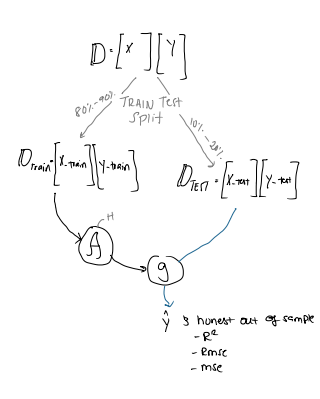 𝔻 = [X][Y]
80%-90%
TRAIN TEST
Split
10%-20%
𝔻Train = [X_train][Y_train]
𝔻TEST = [X_test][Y_test]
H
A
g
ŷ & honest out of sample
- R²
- Rmse
- mse